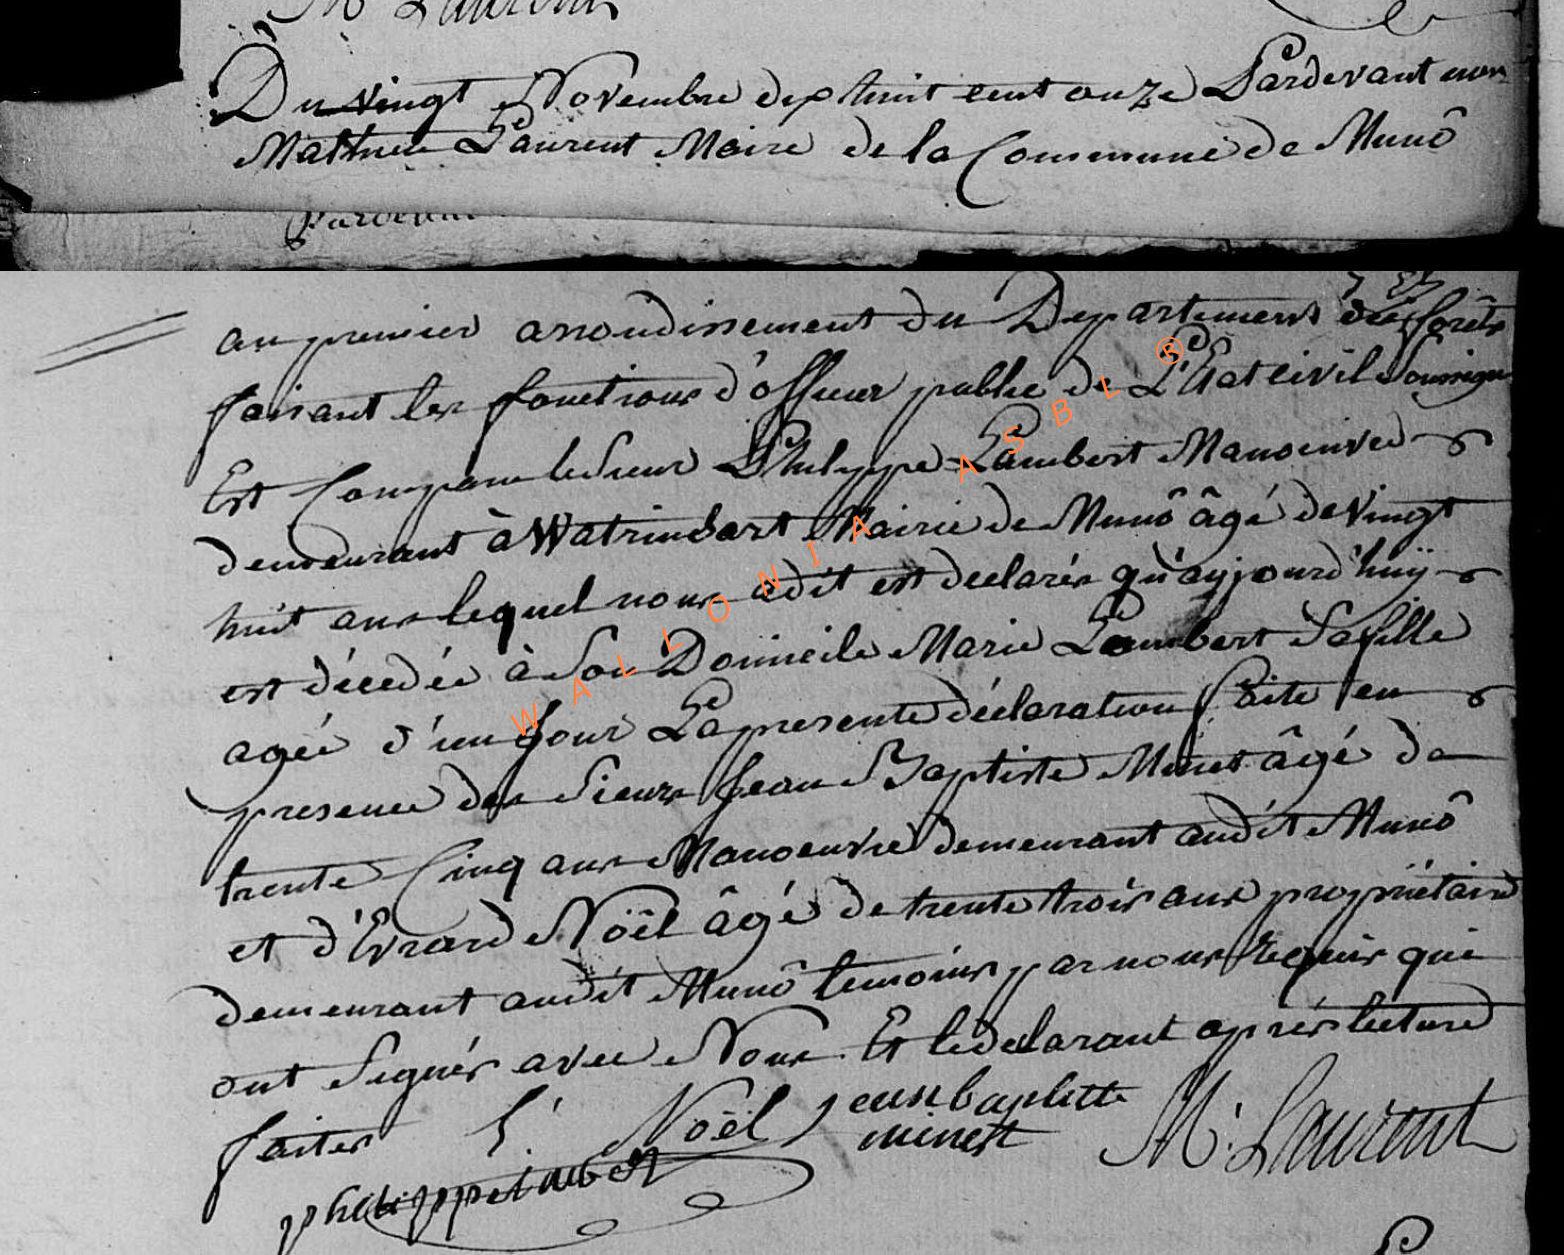 M Laurent
Du vingt Novembre dix huit cent onze Pardevant nous
Mathieu Laurent Maire de la Commune de Munô
Pardevant
au premier arrondissement du Departement des forêts
faisant les fonctions d'officier public de L'Etat civil Soussigné
Est Comparu le Sieur Philippe Lambert Manoeuvre
demeurant à Watrinsart Mairie de Munô âgé de vingt
huit ans lequel nous a dit est declarés qu'ayjourd'huÿ
est décedée à Son Domicile Marie Lambert Sa fille
agée d'un Jour La presente déclaration faite en
presence des Sieurs Jean Baptiste Minet âgé de
trente Cinq ans Manoeuvre demeurant audit Munô
et d'Evrard Noël âgé de trente trois ans propriétaire
demeurant audit Munô temoins par nous Requis qui
ont Signés avec Nous Et le declarant après lecture
faites
Noël
Jean baptitte
minest
M. Laurent
philippe lambert
WALLONIA ASBL ®